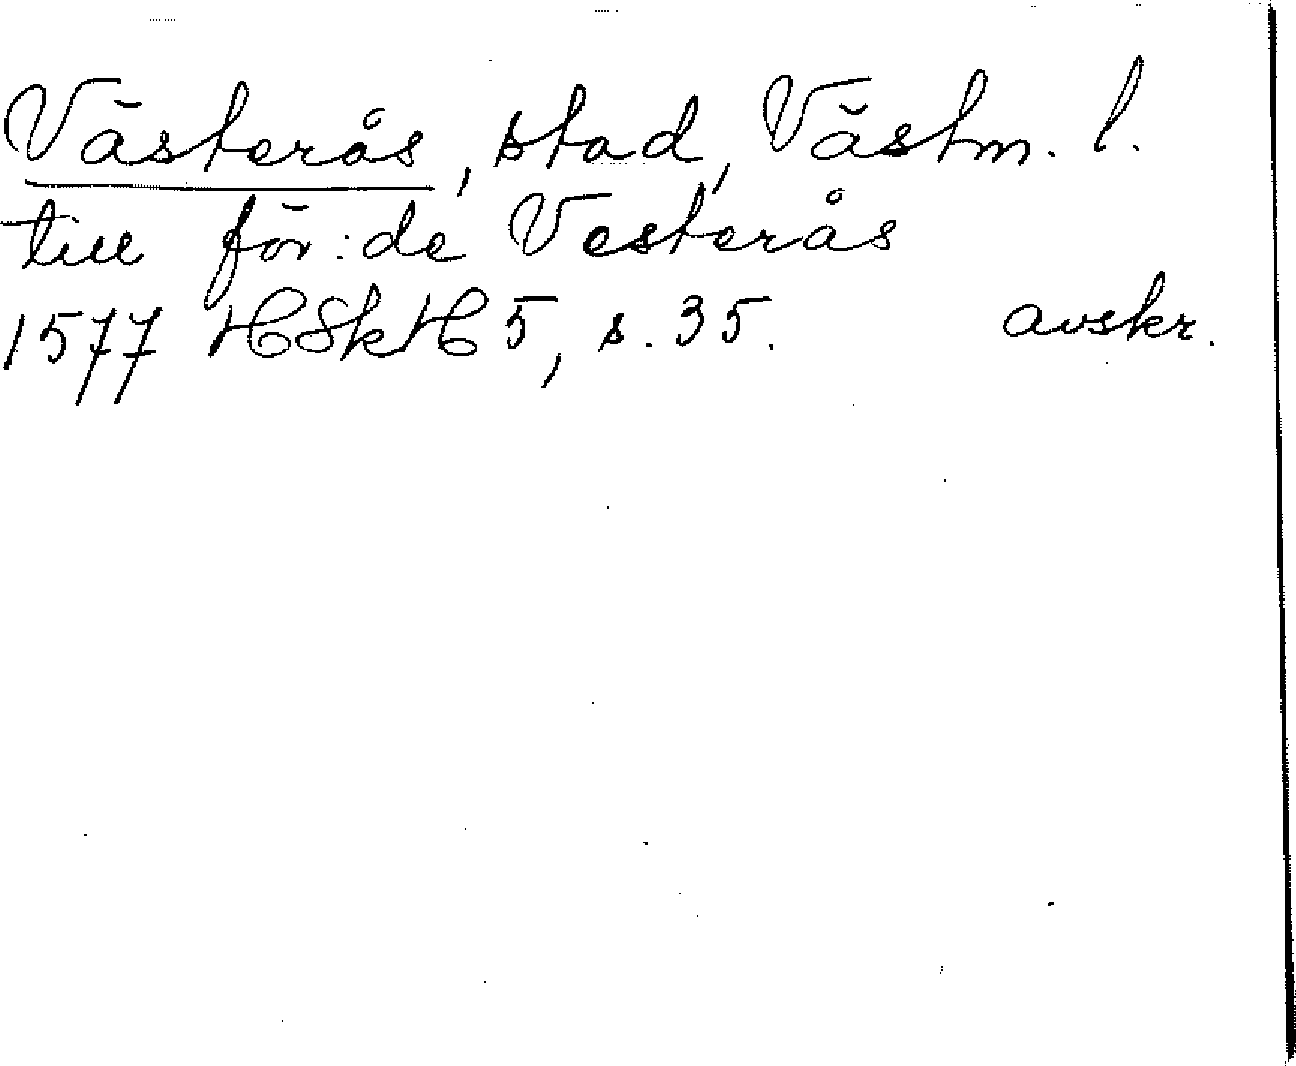 Västerås, stad, Västm. l.
till för:de Vesterås
1577 HSkH 5, s. 35. avskr.